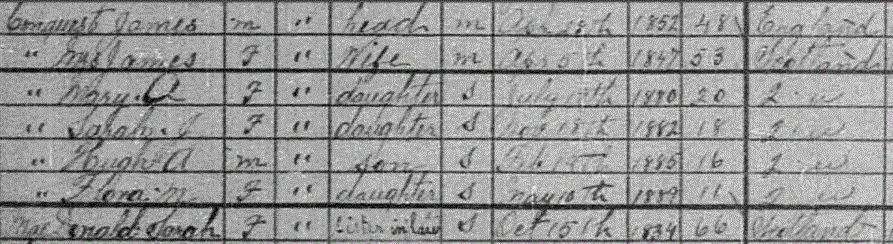 Conquest James m " head m Apr 28th 1852 48 England
" Mrs James F " Wife m Apr 5th 1847 53 Scotland
" Mary A F " daughter S July 19th 1880 20 2 w
" Sarah J F " daughter S 18th 1882 18 2 w
" Hugh A m " son S Feb 19th 1885 16 2 w
" Flora M F " daughter S May 10th 1889 11 2 w
McDonald Sarah F " Sister in law S Oct 15th 1834 66 Scotland